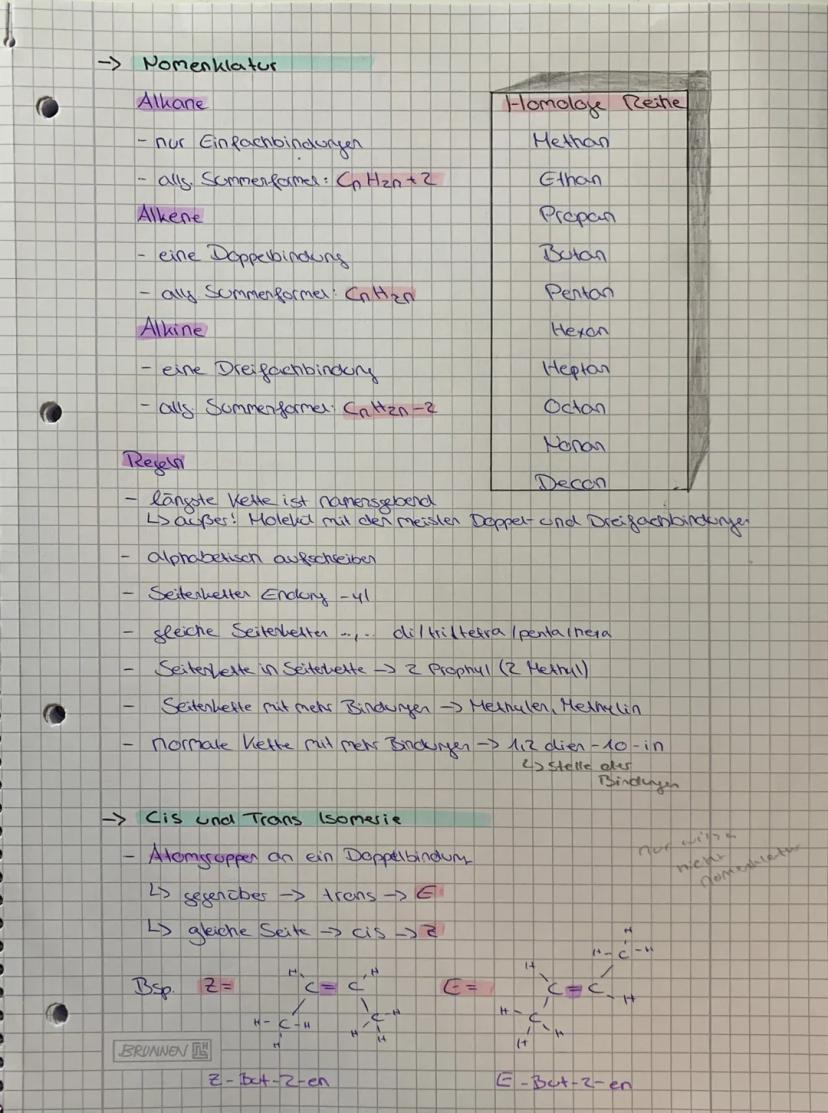 → Nomenklatur
Alkane
- nur Einfachbindungen
- allg. Summenformel: CnH2n+2
Alkene
- eine Doppelbindung
- allg. Summenformel: CnH2n
Alkine
- eine Dreifachbindung
- allg. Summenformel: CnH2n-2
Homologe Reihe
Methan
Ethan
Propan
Butan
Pentan
Hexan
Heptan
Octan
Nonan
Decan
Regeln
- längste Kette ist namensgebend
↳ außer! Molekül mit den meisten Doppel- und Dreifachbindungen
- alphabetisch aufschreiben
- Seitenketten Endung -yl
- gleiche Seitenketten di/tri/tetra/penta/hexa
- Seitenkette in Seitekette → 2 Prophyl (2 Methyl)
- Seitenkette mit mehr Bindungen → Methylen, Methylin
- normale Kette mit mehr Bindungen → 1,2 dien-10-in
↳ Stelle der
Bindungen
→ Cis und Trans Isomerie
- Atomgruppen an ein Doppelbindung
↳ gegenüber → trans → E
↳ gleiche Seite → cis → Z
nicht
nomenklatur
Bsp. Z=
H H
C = C
H - C - H C - H
H H H
Z-But-2-en
E=
H
H - C - H
H
C = C
H - C H
H H
E-But-2-en
BRUNNEN